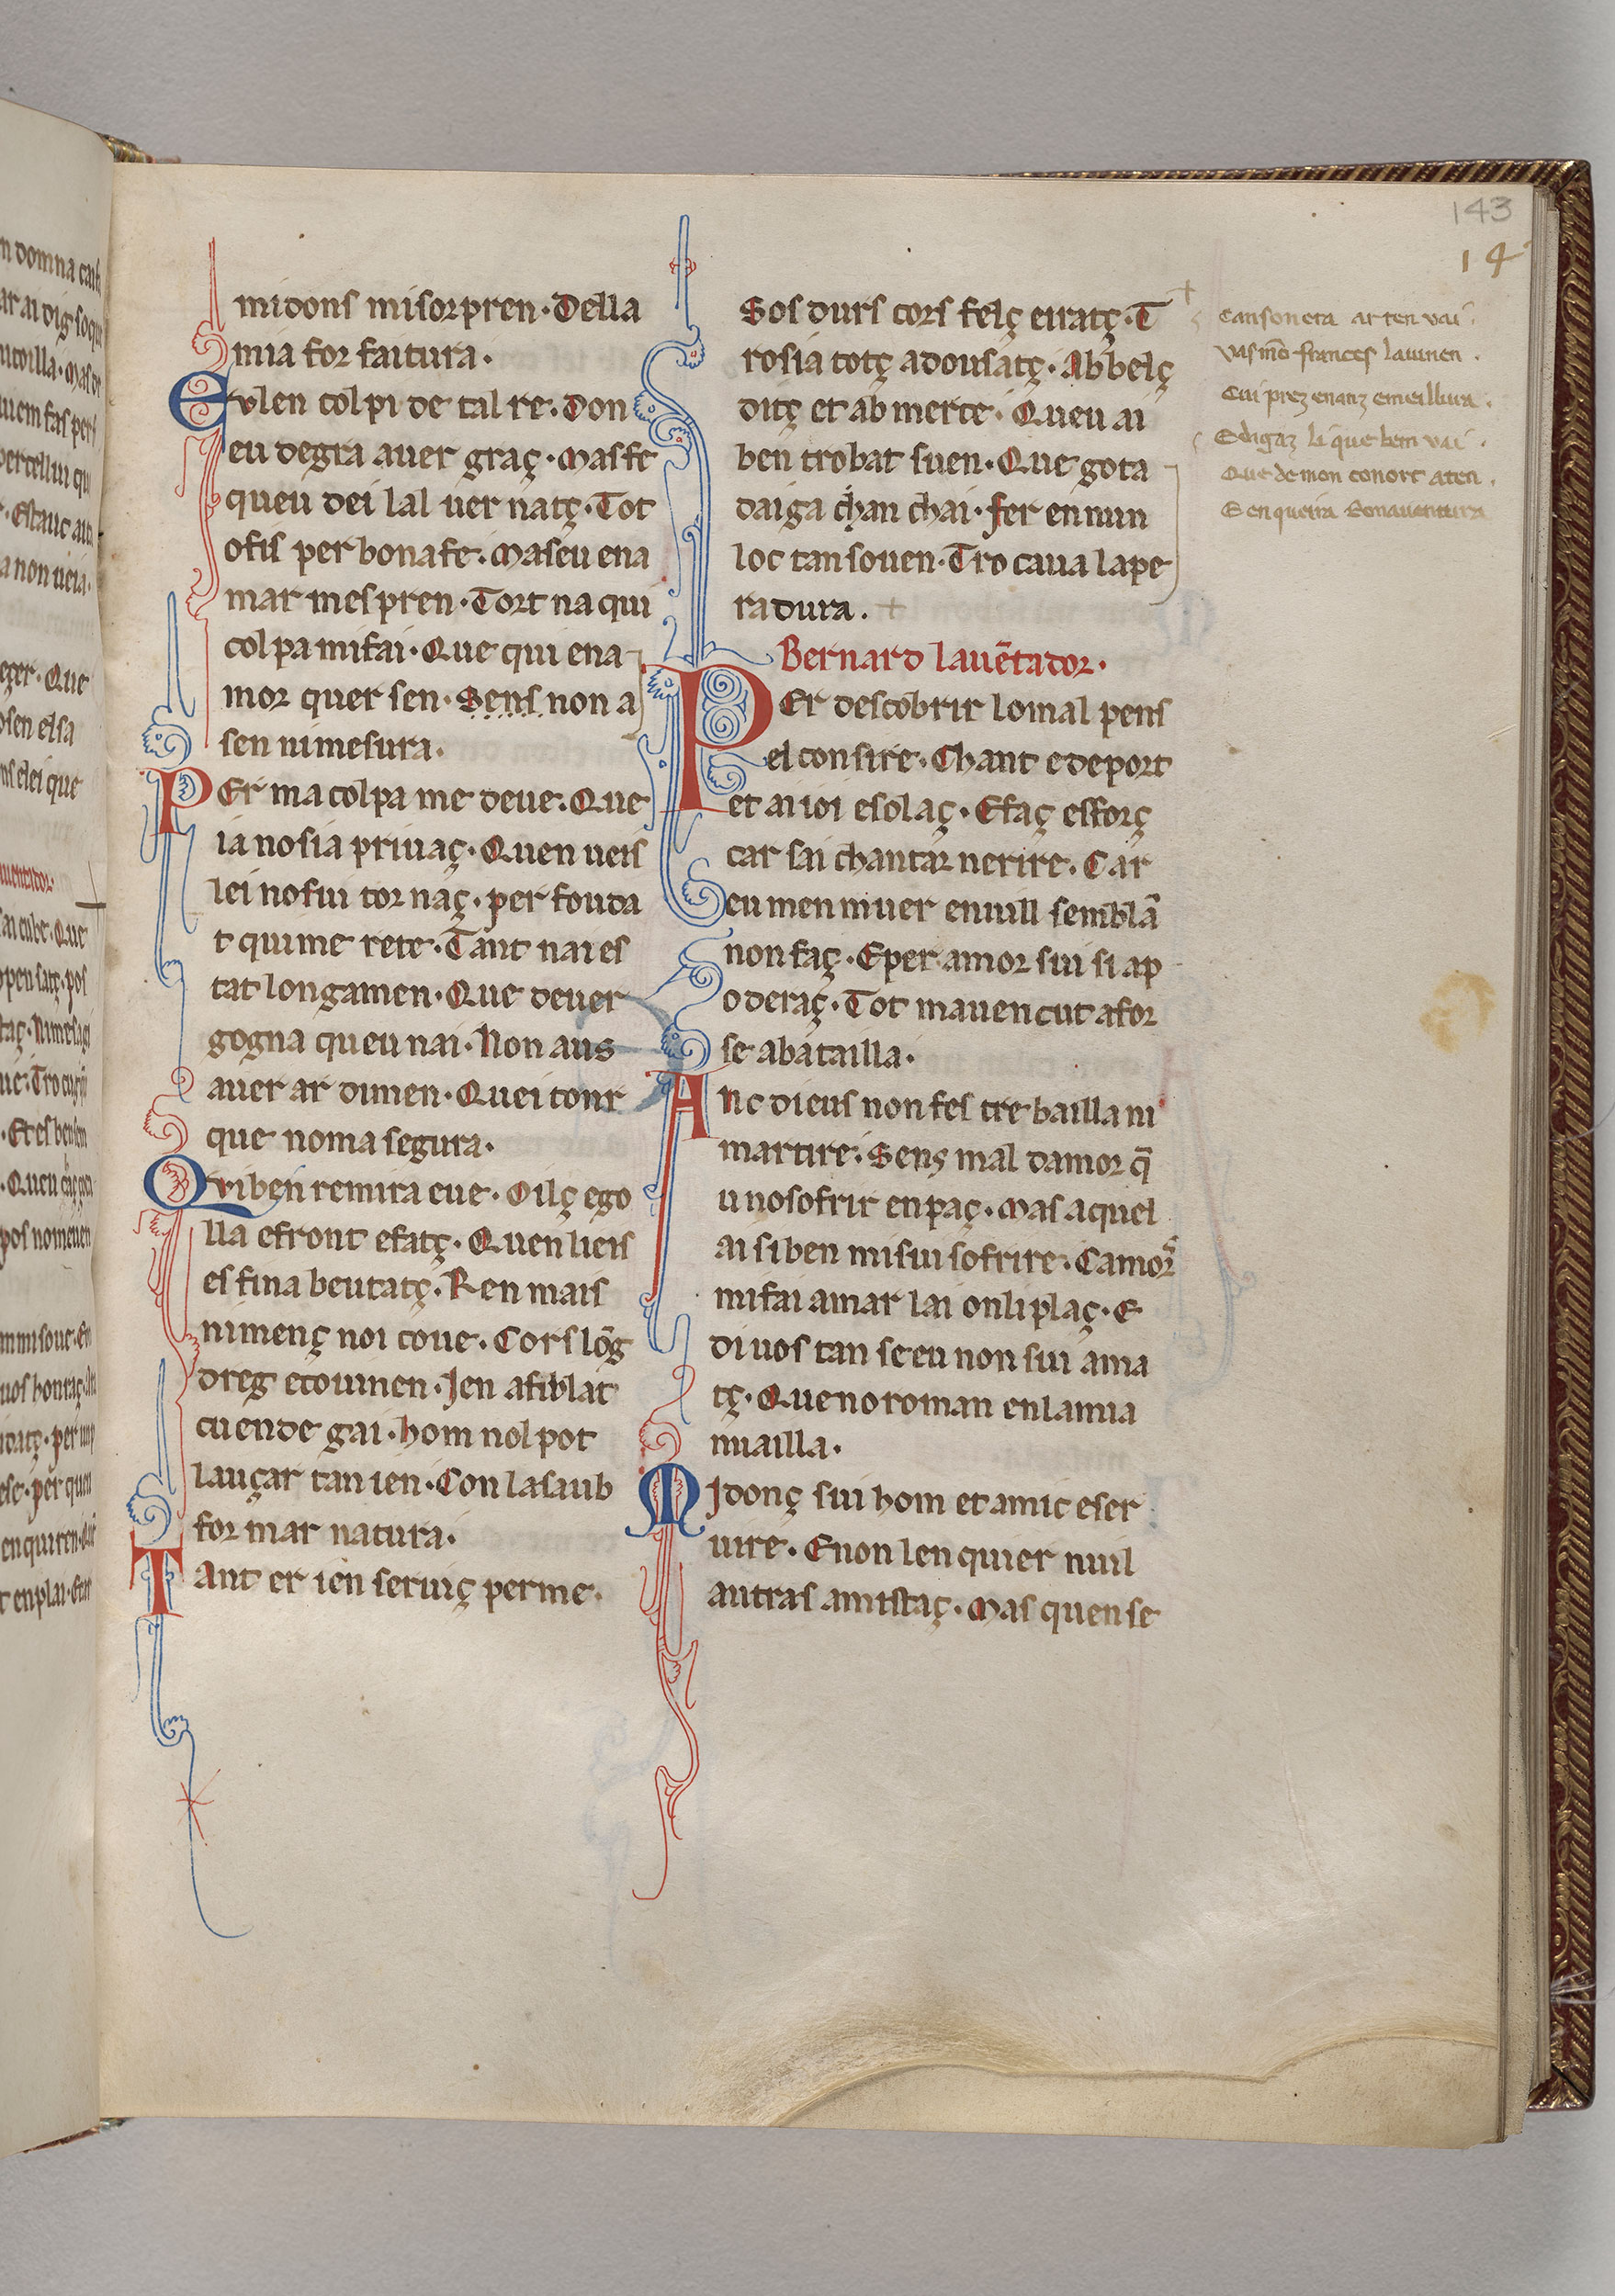 143
14
midons misorpren · Della
mia for faitura ·
Eulen colpi de tal re · Don
eu degra auer graç · Mas fe
queu dei lal uer natç · Tot
ofis per bona fe · Mas eu ena
mar mespren · Tort na qui
colpa mi fai · Que qui ena
mor quer sen · Sens non a
sen ni mesura ·
PEr ma colpa me deue · Que
ia no sia priuaç · Quen ueis
lei no fui tor naç · per fouda
t qui me rete · Tant nai es
tat longamen · Que deuer
gogna queu nai · Non aus
auer ar dimen · Quei tonr
que no ma segura ·
Qui ben remira eue · Oilç e go
lla e front e fatç · Quen lieis
es fina beutatç · Ren mais
ni menç noi coue · Cors lõg
dreg e couinen · Jen afiblat
cuende gai · hom nol pot
lauçar tan ien · Con la saub
for mar natura ·
Tant er ien seruiç per me ·
Sos durs cors felç e iratç · T
ro sia totç adousatç · Ab belç
ditç et ab merce · Queu ai
ben trobat suen · Que gota
daiga chan chai · fer en nun
loc tan souen · Tro caua la pe
ra dura ·
Bernard lauẽtador ·
PEr descobrir lo mal pens
el consire · Chant e deport
et ai ioi e solaç · E faç efforç
car sai chantar ne rire · Car
eu men muer e nuill semblã
non faç · E per amor sui si ap
oderaç · Tot ma uencut a for
se a batailla ·
Anc dieus non fes tre bailla ni
martire · Sens mal damor q̃
u no sofrir en paç · Mas aquel
ai si ben mi sui sofrire · Camors
mi fai amar lai on li plaç · E
di uos tan se eu non sui ama
tç · Que no roman en la mia
nuailla ·
Midonç sui hom et amic e ser
uire · E non len quier nuil
autras amistaç · Mas quen se
Cansoneta ar ten vai ·
Vas mõ frances lauinen ·
Cui prez enanz emeillura ·
E digaz li que bem vai ·
Que de mon conort aten ·
E en queira bonauentura